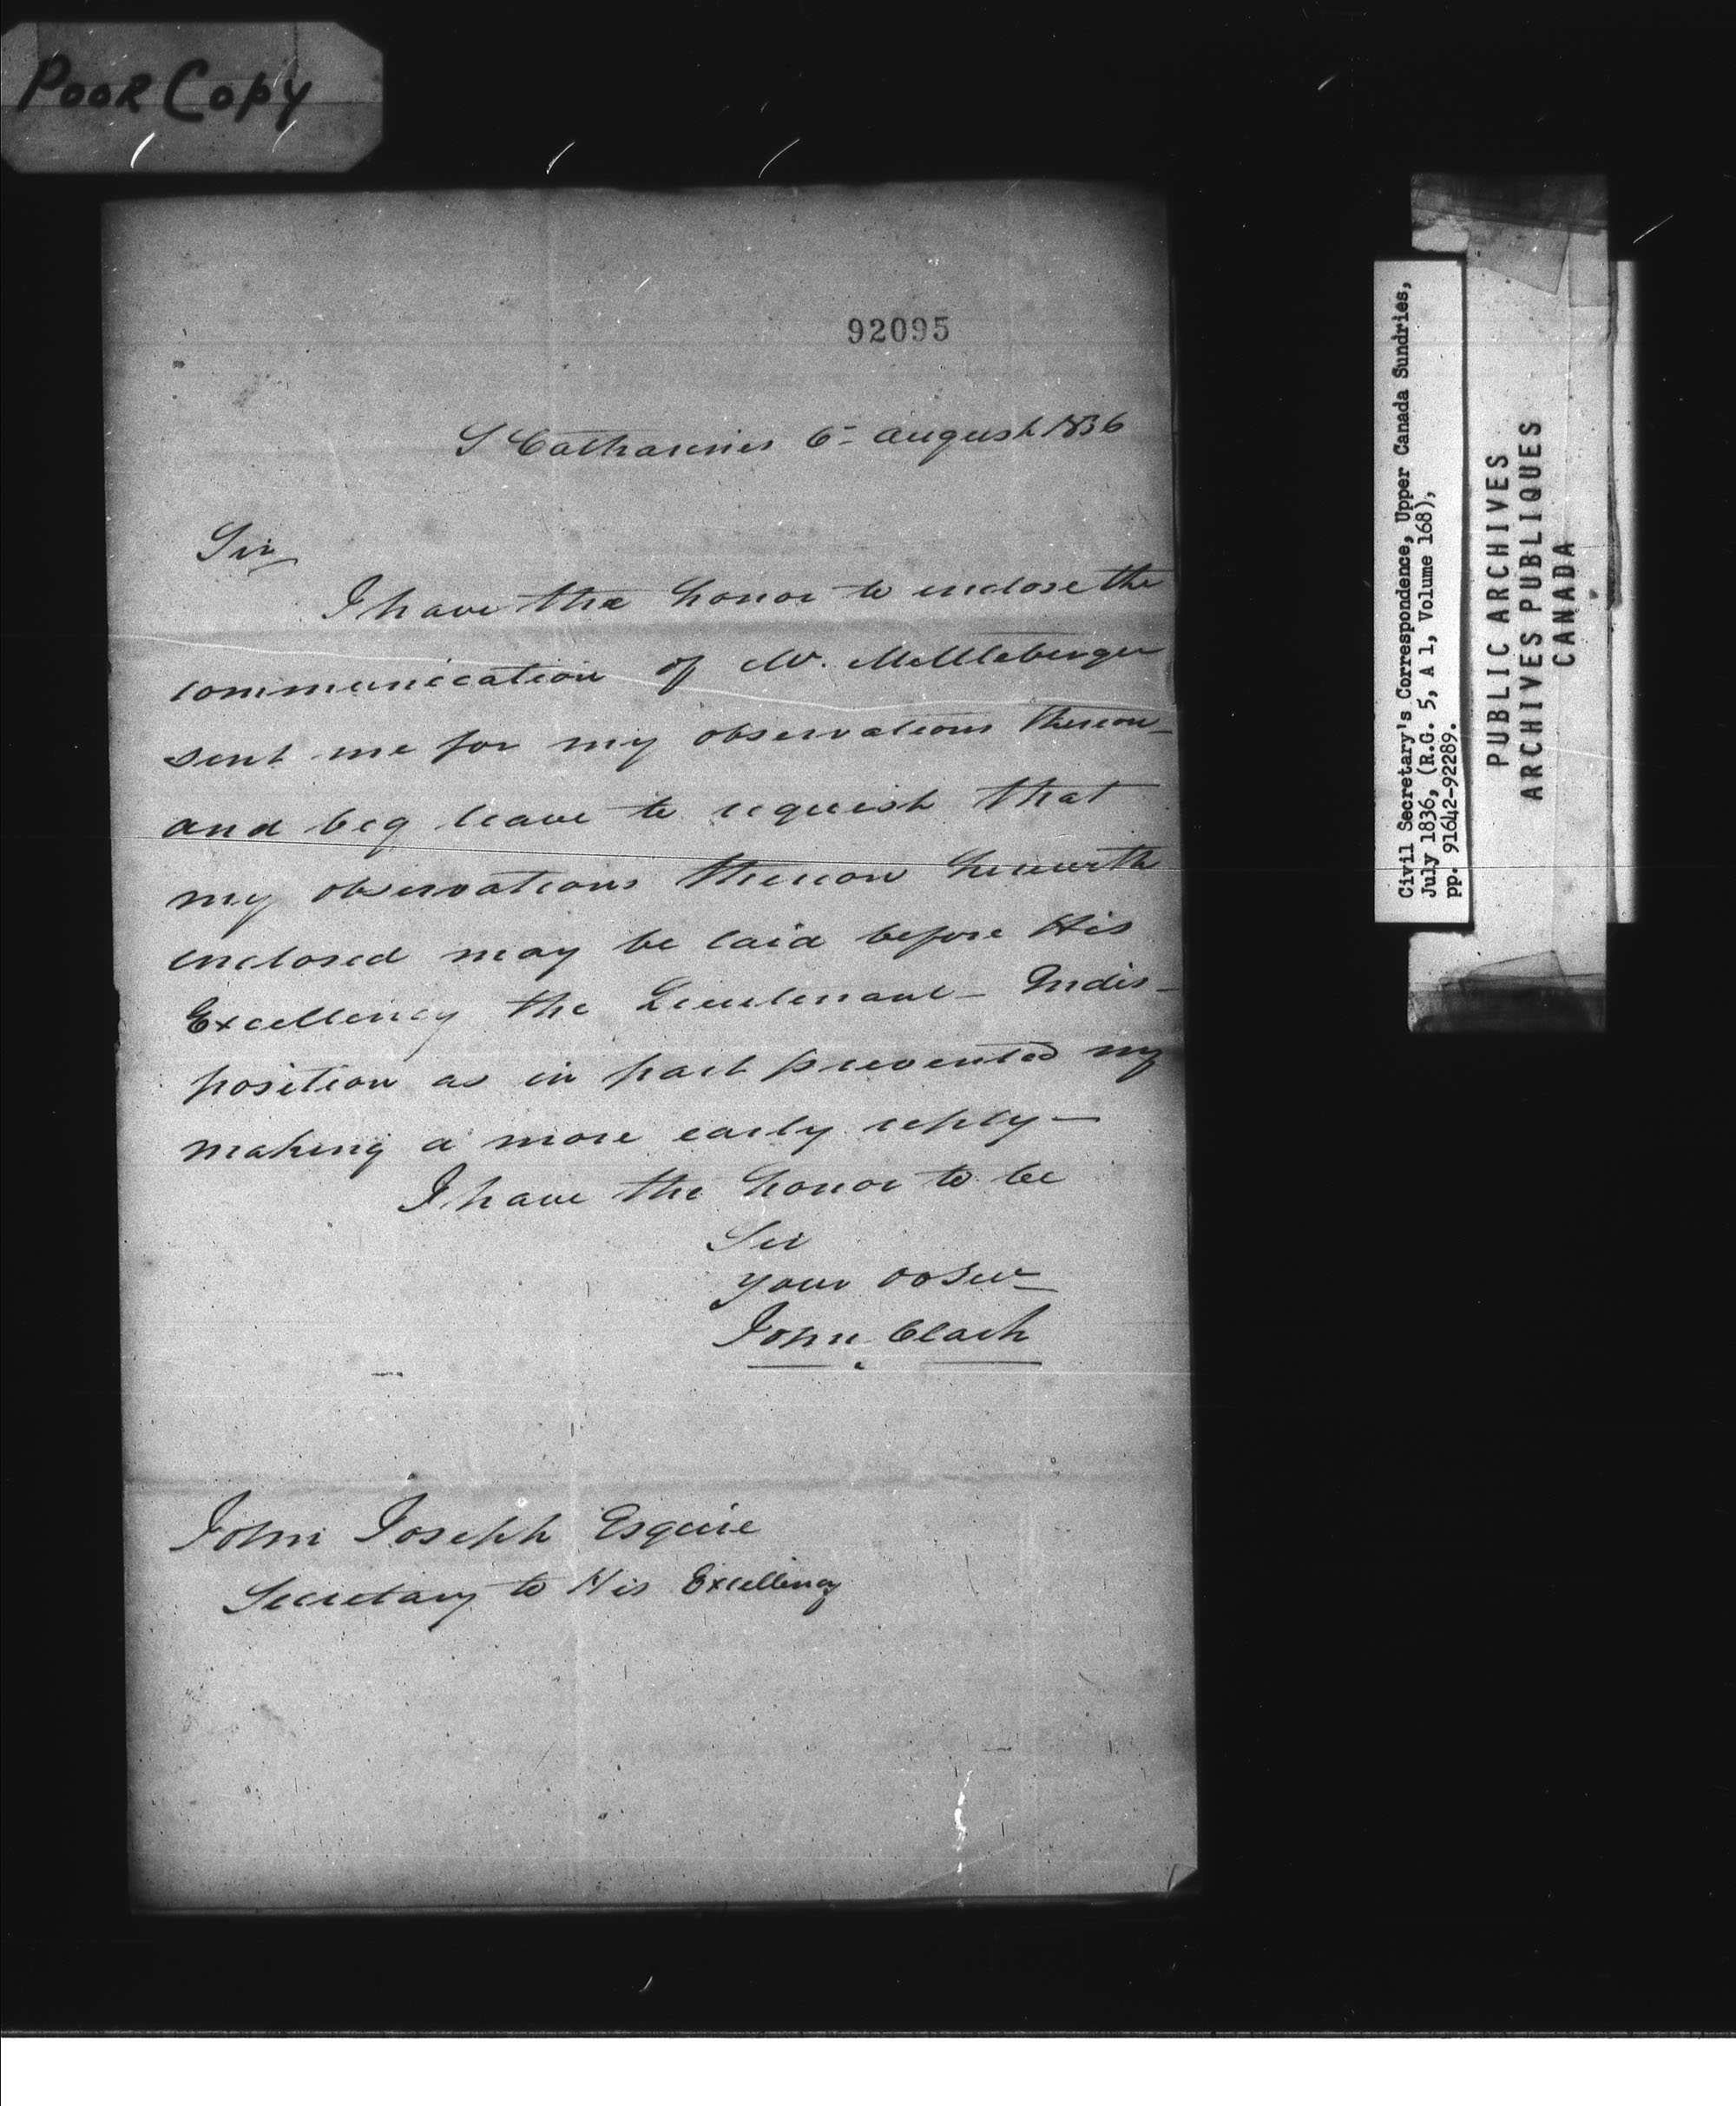 Poor Copy
92095
St Catharines 6th august 1836
Sir
I have the honor to enclose the
communication of Mr. Mettleberger
sent me for my observations thereon
and beg leave to request that
my observations thereon herewith
enclosed may be laid before His
Excellency the Lieutenant - Indis-
position as in part prevented my
making a more early reply -
I have the honor to be
Sir
your ob Ser
John Clark
John Joseph Esquire
Secretary to His Excellency
Civil Secretary's Correspondence, Upper Canada Sundries,
July 1836, (R.G. 5, A 1, Volume 168),
pp. 91642-92289.
PUBLIC ARCHIVES
ARCHIVES PUBLIQUES
CANADA